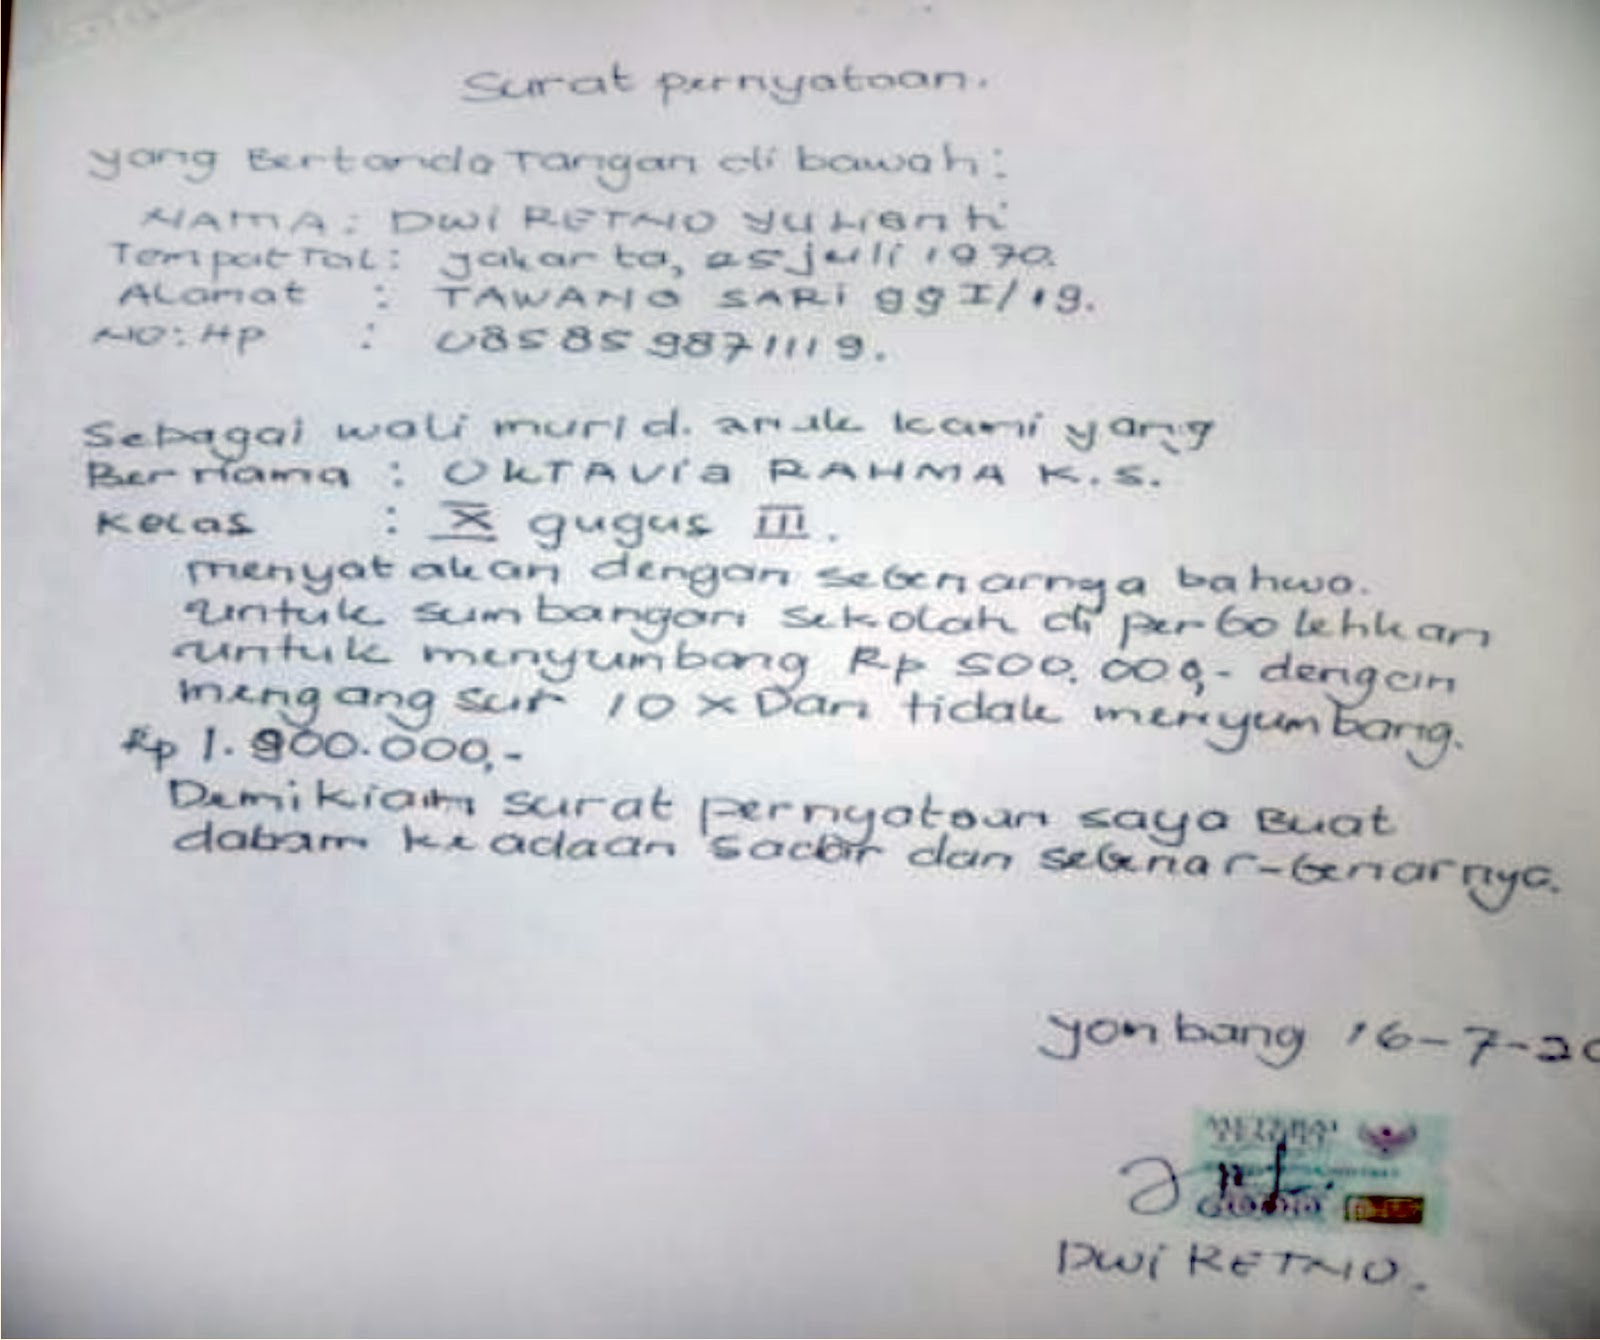 Surat pernyataan.
yang Bertanda Tangan di bawah:
NAMA: DWi RETNO YULianti
Tempat Tal: jakarta, 25 juli 1970.
ALamat : TAWANG SARi gg I/19.
NO: HP : 085859871119.
Sebagai wali murid. anak kami yang
Bernama : OKTAVia RAHMA K.S.
Kelas : X gugus III.
menyatakan dengan sebenarnya bahwa.
untuk sumbangan sekolah di perbolehkan
untuk menyumbang Rp 500.000,- dengan
mengangsur 10 x Dan tidak menyumbang.
Rp 1.900.000,-
Demikian surat pernyataan saya Buat
dalam keadaan sadar dan sebenar-benarnya.
yombang 16-7-20
DWi RETNO.